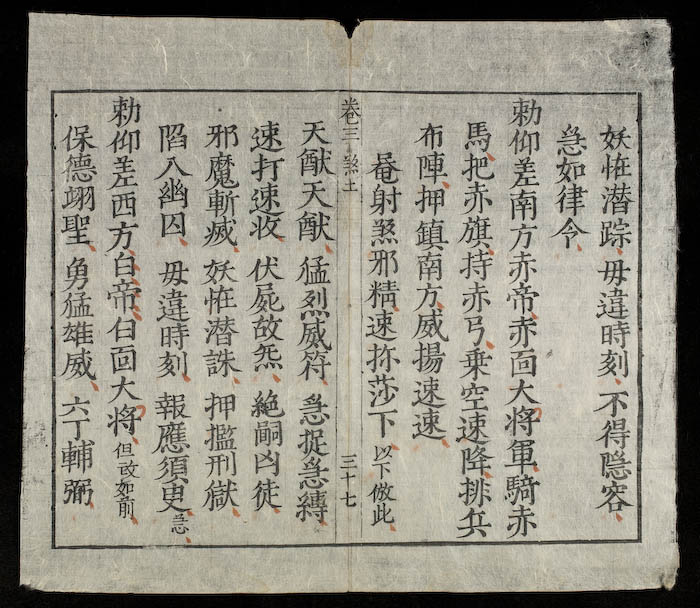 妖恠潜踪、毋違時刻、不得隐容、
急如律令、
勅仰差南方赤帝、赤面大将軍、騎赤
馬、把赤旗、持赤弓、乗空速降、排兵
布陣、押鎮南方、威揚速速、
菴射煞邪精、速殄莎下 以下倣此、
卷三 煞土
三十七
天猷天猷、猛烈威符、急捉急縛、
速打速收、伏屍故炁、絶嗣凶徒、
邪魔斬滅、妖恠潜誅、押㩜刑獄、
陷入幽囚、毋違時刻、報應須臾、急
勅仰差西方白帝、白面大将、但改如前、
保德翊聖、勇猛雄威、六丁輔弼、